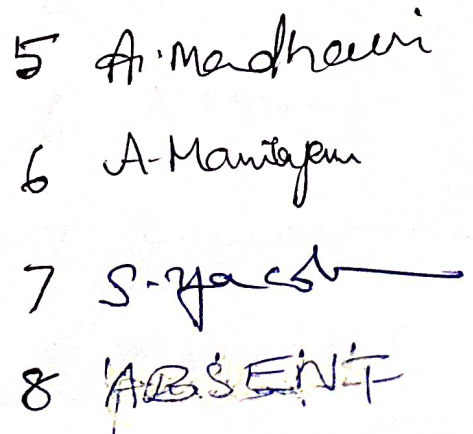 5 A. Madhavi
6 A. Manivasam
7 S. Yacob
8 ABSENT